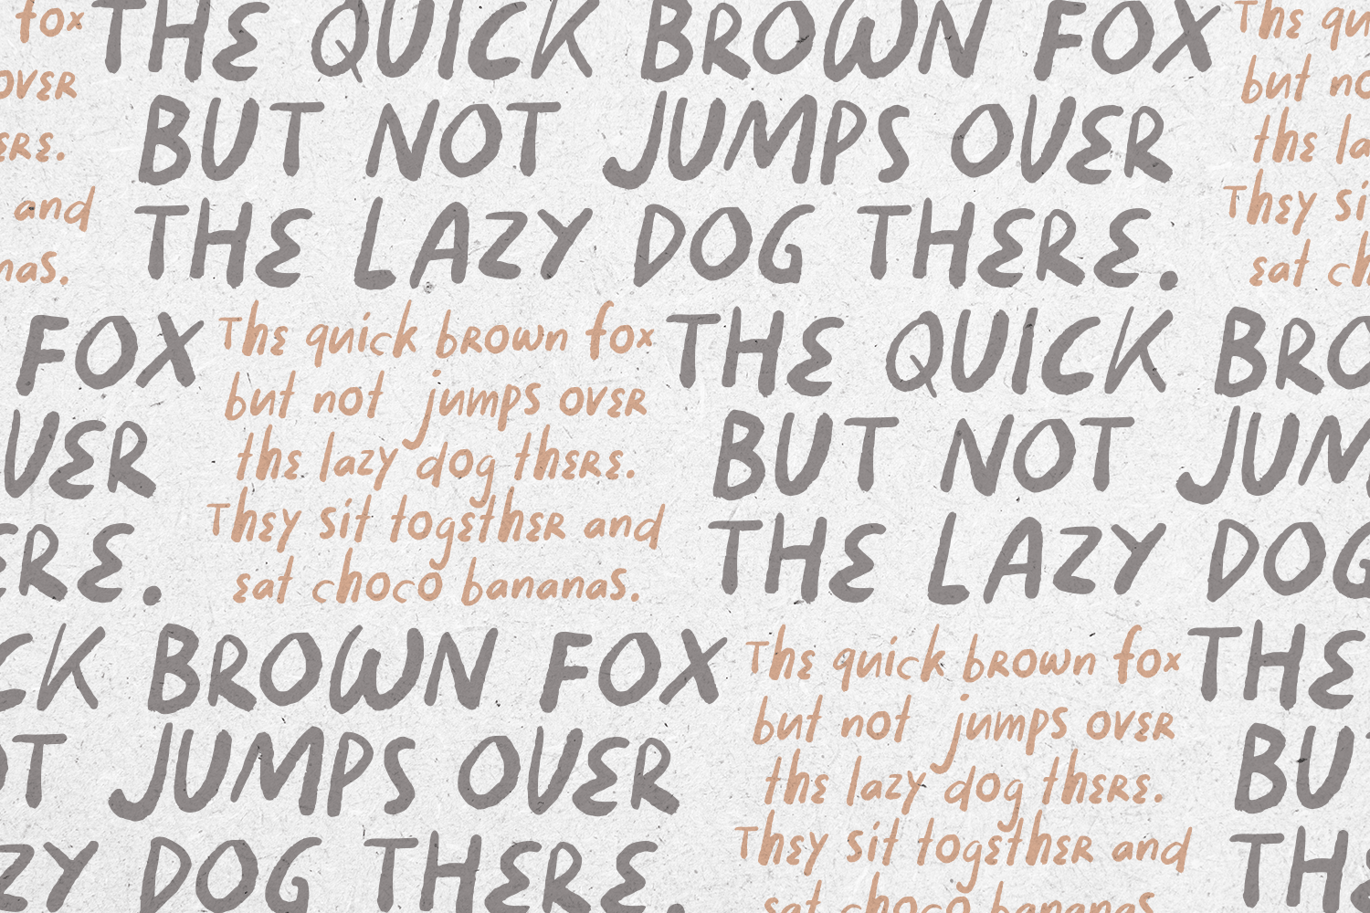 fox
over
ere.
and
nas.
THE QUICK BROWN FOX
BUT NOT JUMPS OVER
THE LAZY DOG THERE.
The qu
but no
the la
They si
eat ch
FOX
VER
ERE.
The quick brown fox
but not jumps over
the lazy dog there.
They sit together and
eat choco bananas.
THE QUICK BRO
BUT NOT JUM
THE LAZY DOG
CK BROWN FOX
OT JUMPS OVER
ZY DOG THERE.
The quick brown fox
but not jumps over
the lazy dog there.
They sit together and
eat choco bananas.
THE
BU
THE